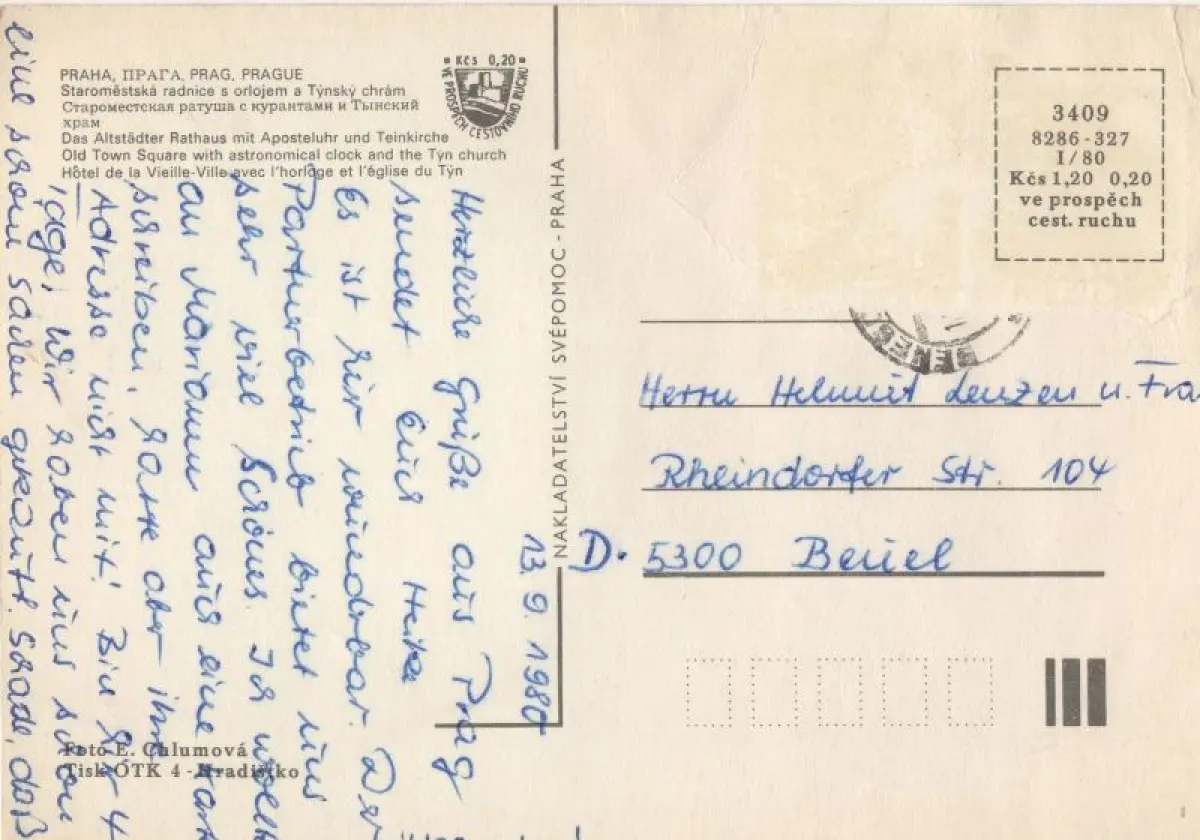 PRAHA, ПРАГА, PRAG, PRAGUE
Staroměstská radnice s orlojem a Týnský chrám
Староместская ратуша с курантами и Тынский
храм
Das Altstädter Rathaus mit Aposteluhr und Teinkirche
Old Town Square with astronomical clock and the Týn church
Hôtel de la Vieille-Ville avec l'horloge et l'église du Týn
Kčs 0,20
VE PROSPĚCH CESTOVNÍHO RUCHU
13. 9. 1980
Herzliche Grüße aus Prag
sendet Euch Heike
Es ist hier wunderbar. Der
Partnerbetrieb bietet uns
sehr viel Schönes. Ich wollt
an Mariann auch eine Kart
schreiben, hatte aber ihre
Adresse nicht mit! Bin hier 4
Tage; Wir haben uns schon
eine schon sachen gekauft. Schade, daß
Foto E. Chlumová
Tisk ÓTK 4 - Hradištko
NAKLADATELSTVÍ SVÉPOMOC - PRAHA
3409
8286-327
I/80
Kčs 1,20 0,20
ve prospěch
cest. ruchu
Herrn Helmut Lenzen u. Fra
Rheindorfer Str. 104
D. 5300 Beuel